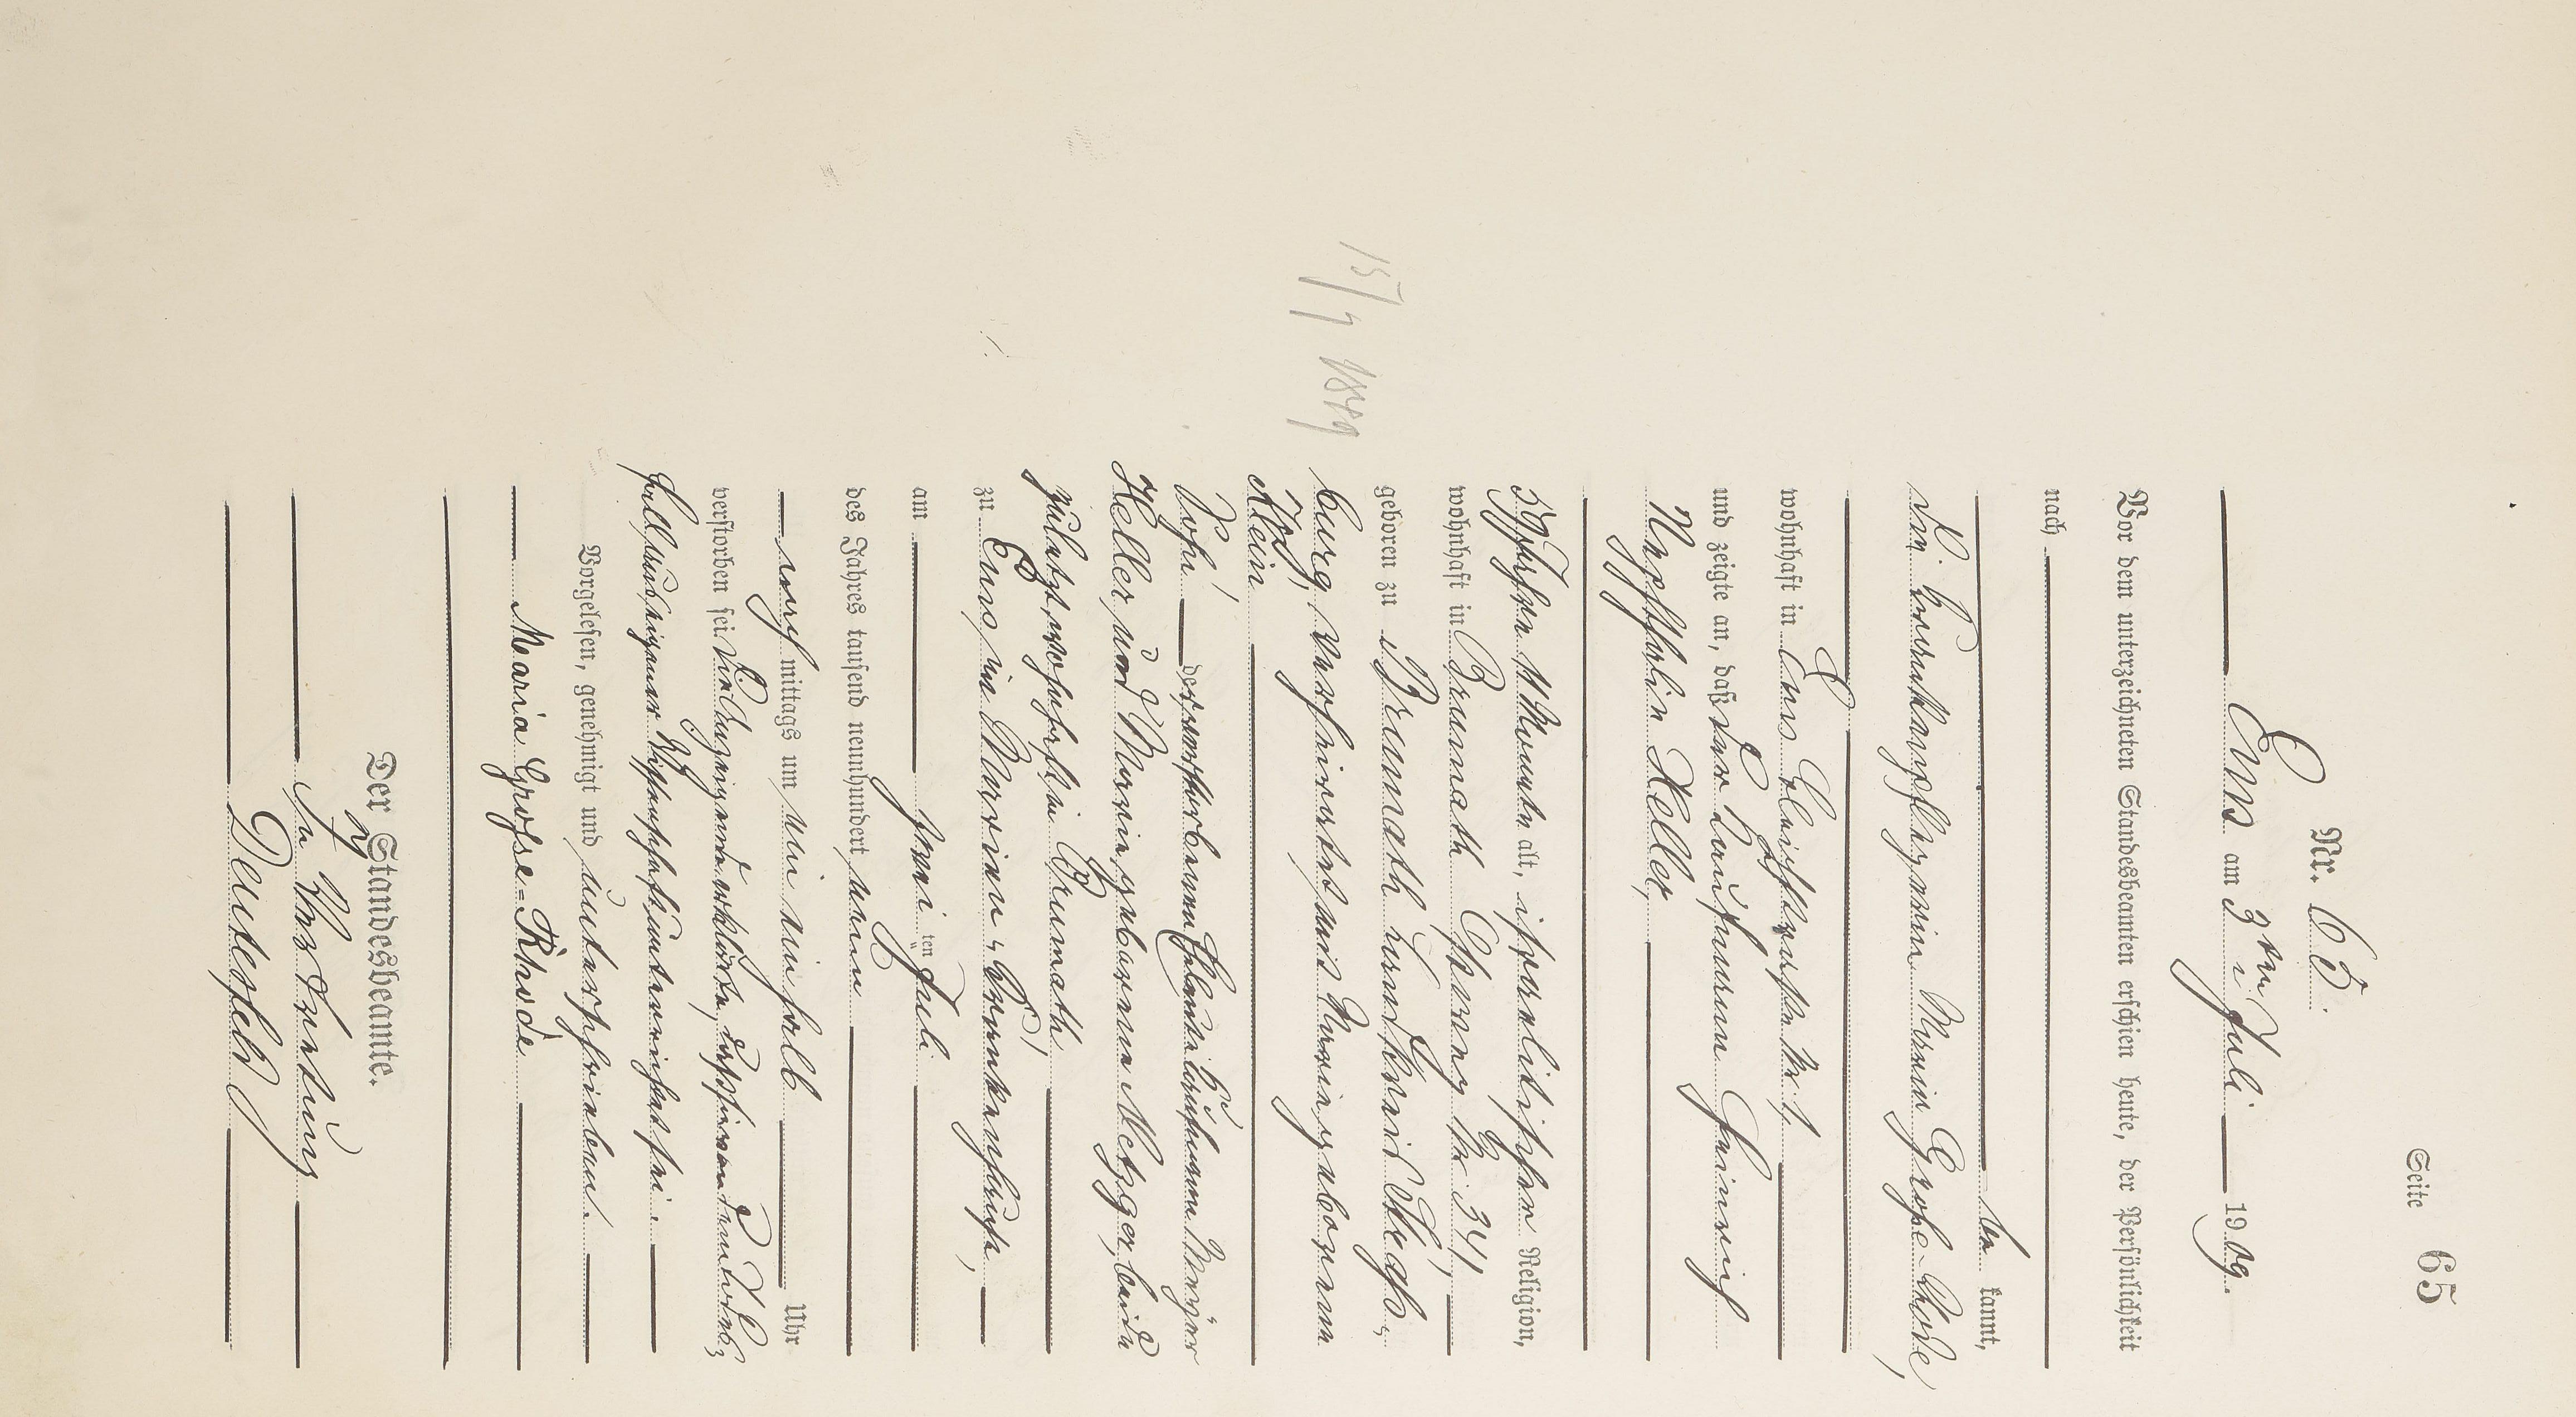 Seite 65
Nr. 65.
Ems am 3ten Juli 1909.
Vor dem unterzeichneten Standesbeamten erschien heute, der Persönlichkeit
nach
be kannt,
die Krankenpflegerin Maria Große-Rhode,
wohnhaft in Ems Bleichstraße Nr. 1,
und zeigte an, daß der Kaufmann Heinrich
Nephthalin Heller,
59 Jahre 11 Monate alt, israelitischer Religion,
wohnhaft in Brumath Nr. 341,
geboren zu Brumath Landkreis Straß-
burg, verheiratet mit Mariageborenen
Klein
Sohn des verstorbenen Mayer
Heller, und Mariegeborenen Metzger, beide
zuletzt wohnhaft in Brumath
zu Ems, im Marien-Krankenhause,
am zwei ten Juli
des Jahres tausend neunhundert neun
nach mittags um ein einhalb Uhr
verstorben sei. Die Anzeigende erklärte, daß sie von dem Todes-
fall aus eigener Wissenschaft unterrichtet sei.
Vorgelesen, genehmigt und unterschrieben.
Maria Grosse-Rhode
Der Standesbeamte.
In Vertretung